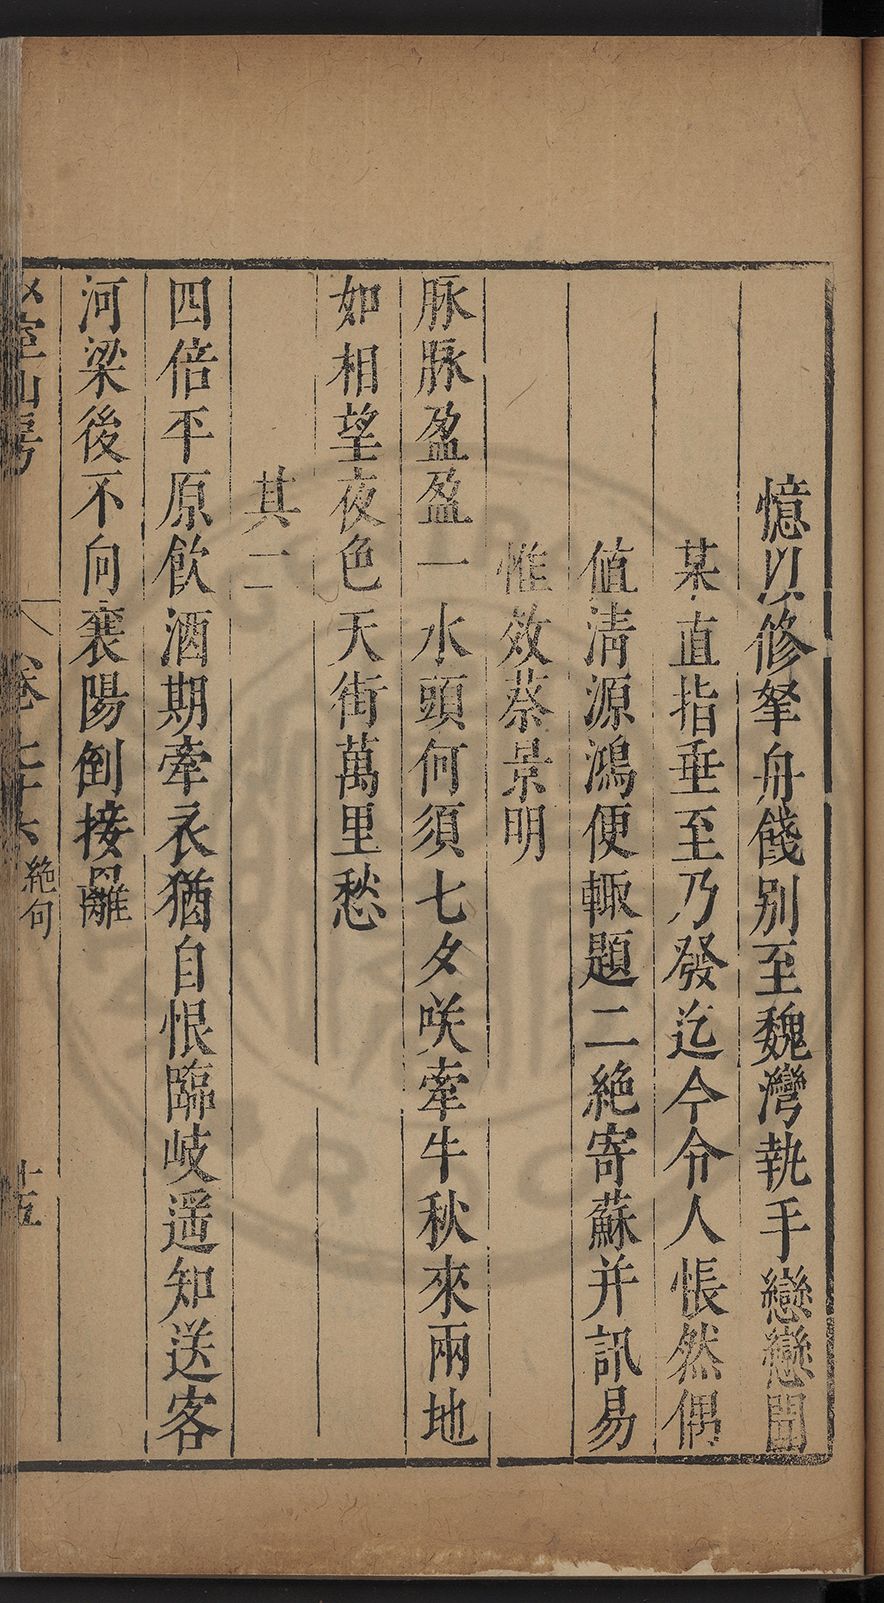 憶以修孥舟餞别至魏灣執手戀戀聞
某直指垂至乃發迄今令人悵然偶
值清源鴻便輙題二絶寄蘇并訊易
惟效蔡景明
脉脉盈盈一水頭何須七夕咲牽牛秋來兩地
如相望夜色天街萬里愁
其二
四倍平原飲酒期牽衣猶自恨臨岐遥知送客
河梁後不向襄陽倒接䍦
室山房
卷七十六
絶句
十五